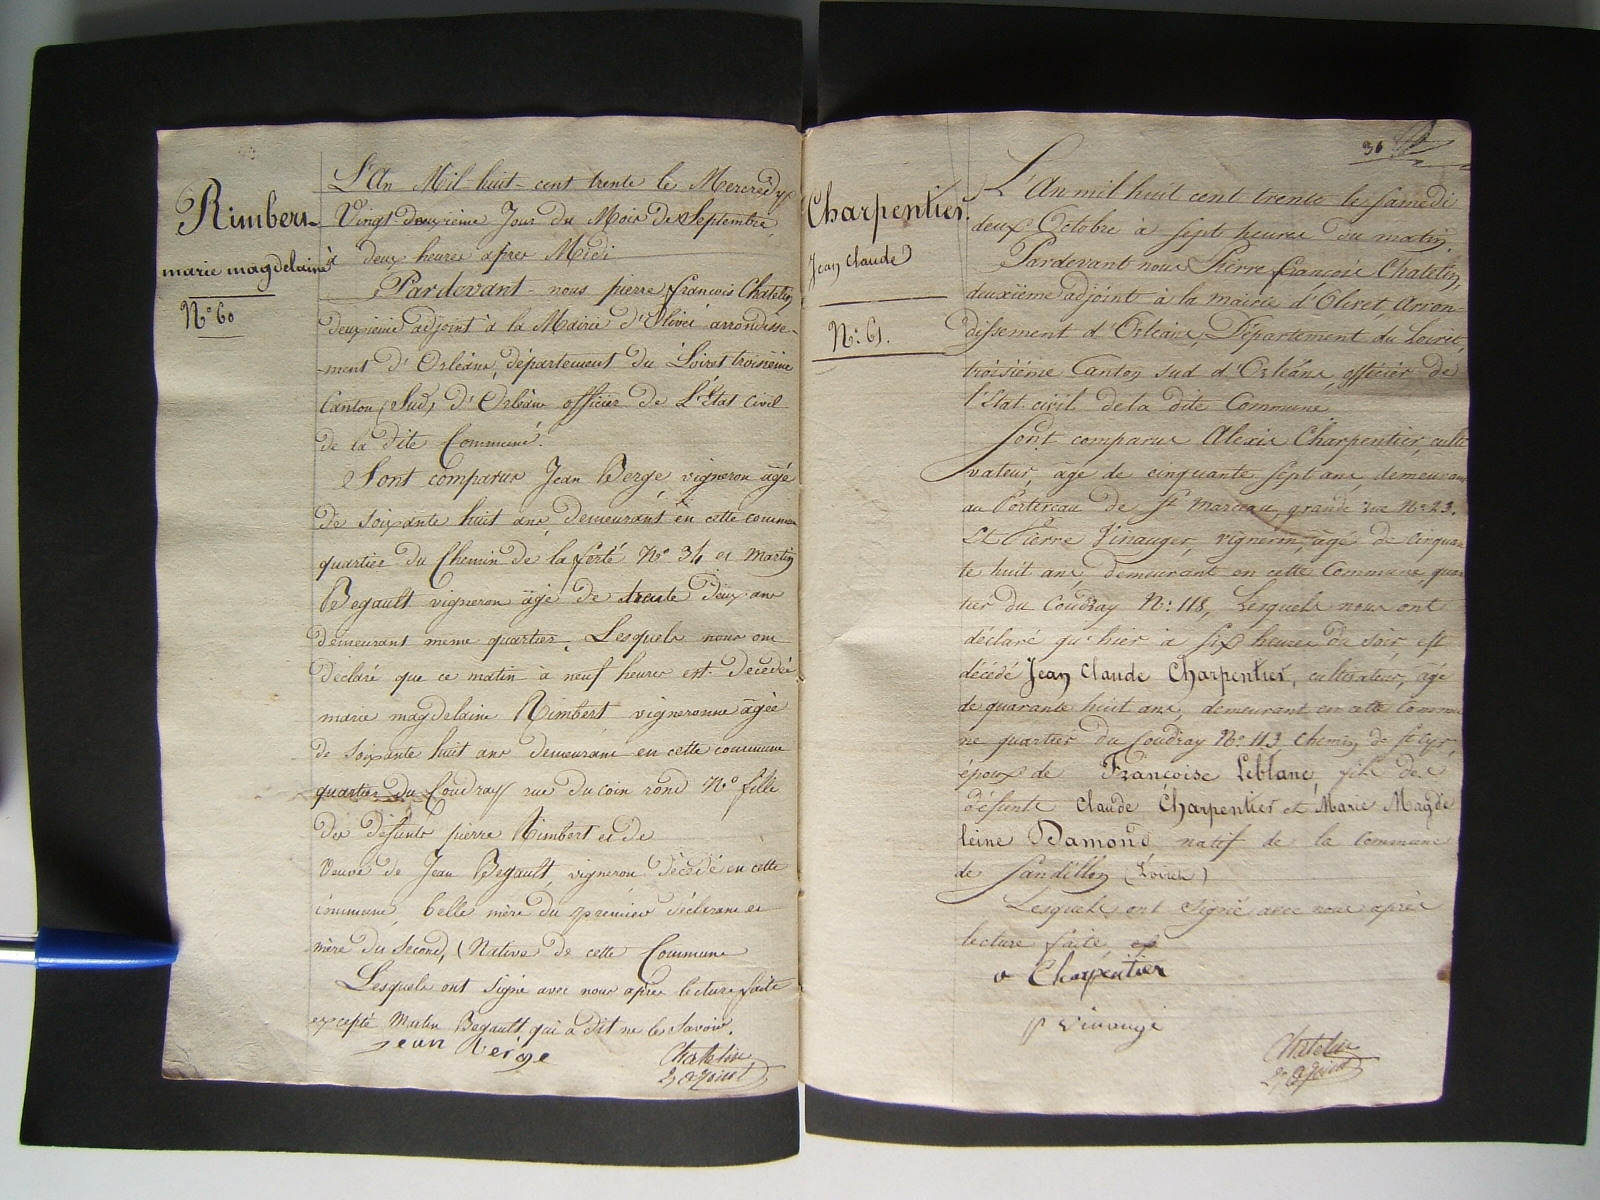 Rimbert
marie magdelaine
N° 60
L'An Mil-huit-cent trente le Mercredy
Vingt-deuxième Jour du Mois de Septembre
à deux heures après Midi
Pardevant-nous pierre françois Chatelin
deuxième adjoint à la Mairie d'Olivet arrondisse-
-ment d'Orléans, département du Loiret troisième
Canton (Sud) d'Orléans officier de L'Etat Civil
de la dite Commune.
Sont comparus Jean Berge vigneron âgé
de soixante huit ans demeurant en cette commune
quartier du Chemin de la ferté N° 34 et Martin
Begault vigneron âgé de trente deux ans
demeurant même quartier. Lesquels nous ont
déclaré que ce matin à neuf heures est décédée
marie magdelaine Rimbert vigneronne âgée
de soixante huit ans demeurant en cette commune
quartier du Coudray rue du coin rond N° fille
de défunts pierre Rimbert et de
Veuve de Jean Begault, vigneron décédé en cette
commune, belle mère du premier déclarant et
mère du second, (Native de cette Commune
Lesquels ont signé avec nous après lecture faite
excepté Martin Begault qui a dit ne le savoir.
Jean Berge
Chatelin
2e adjoint
36
Charpentier
Jean Claude
N°: 61.
L'An mil huit cent trente le samedi
deux Octobre à sept heures du matin.
Pardevant nous Pierre françois Chatelin,
deuxième adjoint à la mairie d'Olivet, Arron-
dissement d'Orléans, Département du Loiret,
troisième Canton sud d'Orléans, officier de
l'Etat-civil de la dite Commune
Sont comparus Alexis Charpentier, culti
vateur, âgé de cinquante sept ans demeurant
au Portereau de St Marceau, grande rue N°: 23.
Et Pierre Vinauger, vigneron, âgé de cinquan
te huit ans, demeurant en cette Commune quar
tier du Coudray N°: 118, Lesquels nous ont
déclaré qu'hier à six heures du soir est
décédé Jean Claude Charpentier, cultivateur, âgé
de quarante huit ans, demeurant en cette Commu
ne quartier du Coudray N°: 113 Chemin de St Cyr,
époux de Françoise Leblanc, fils de
défunts Claude Charpentier et Marie Magde
leine Damond natif de la commune
de Sandillon (Loiret)
Lesquels ont signé avec nous après
lecture faite
Charpentier
p vinauge
Chatelin
2e adjoint